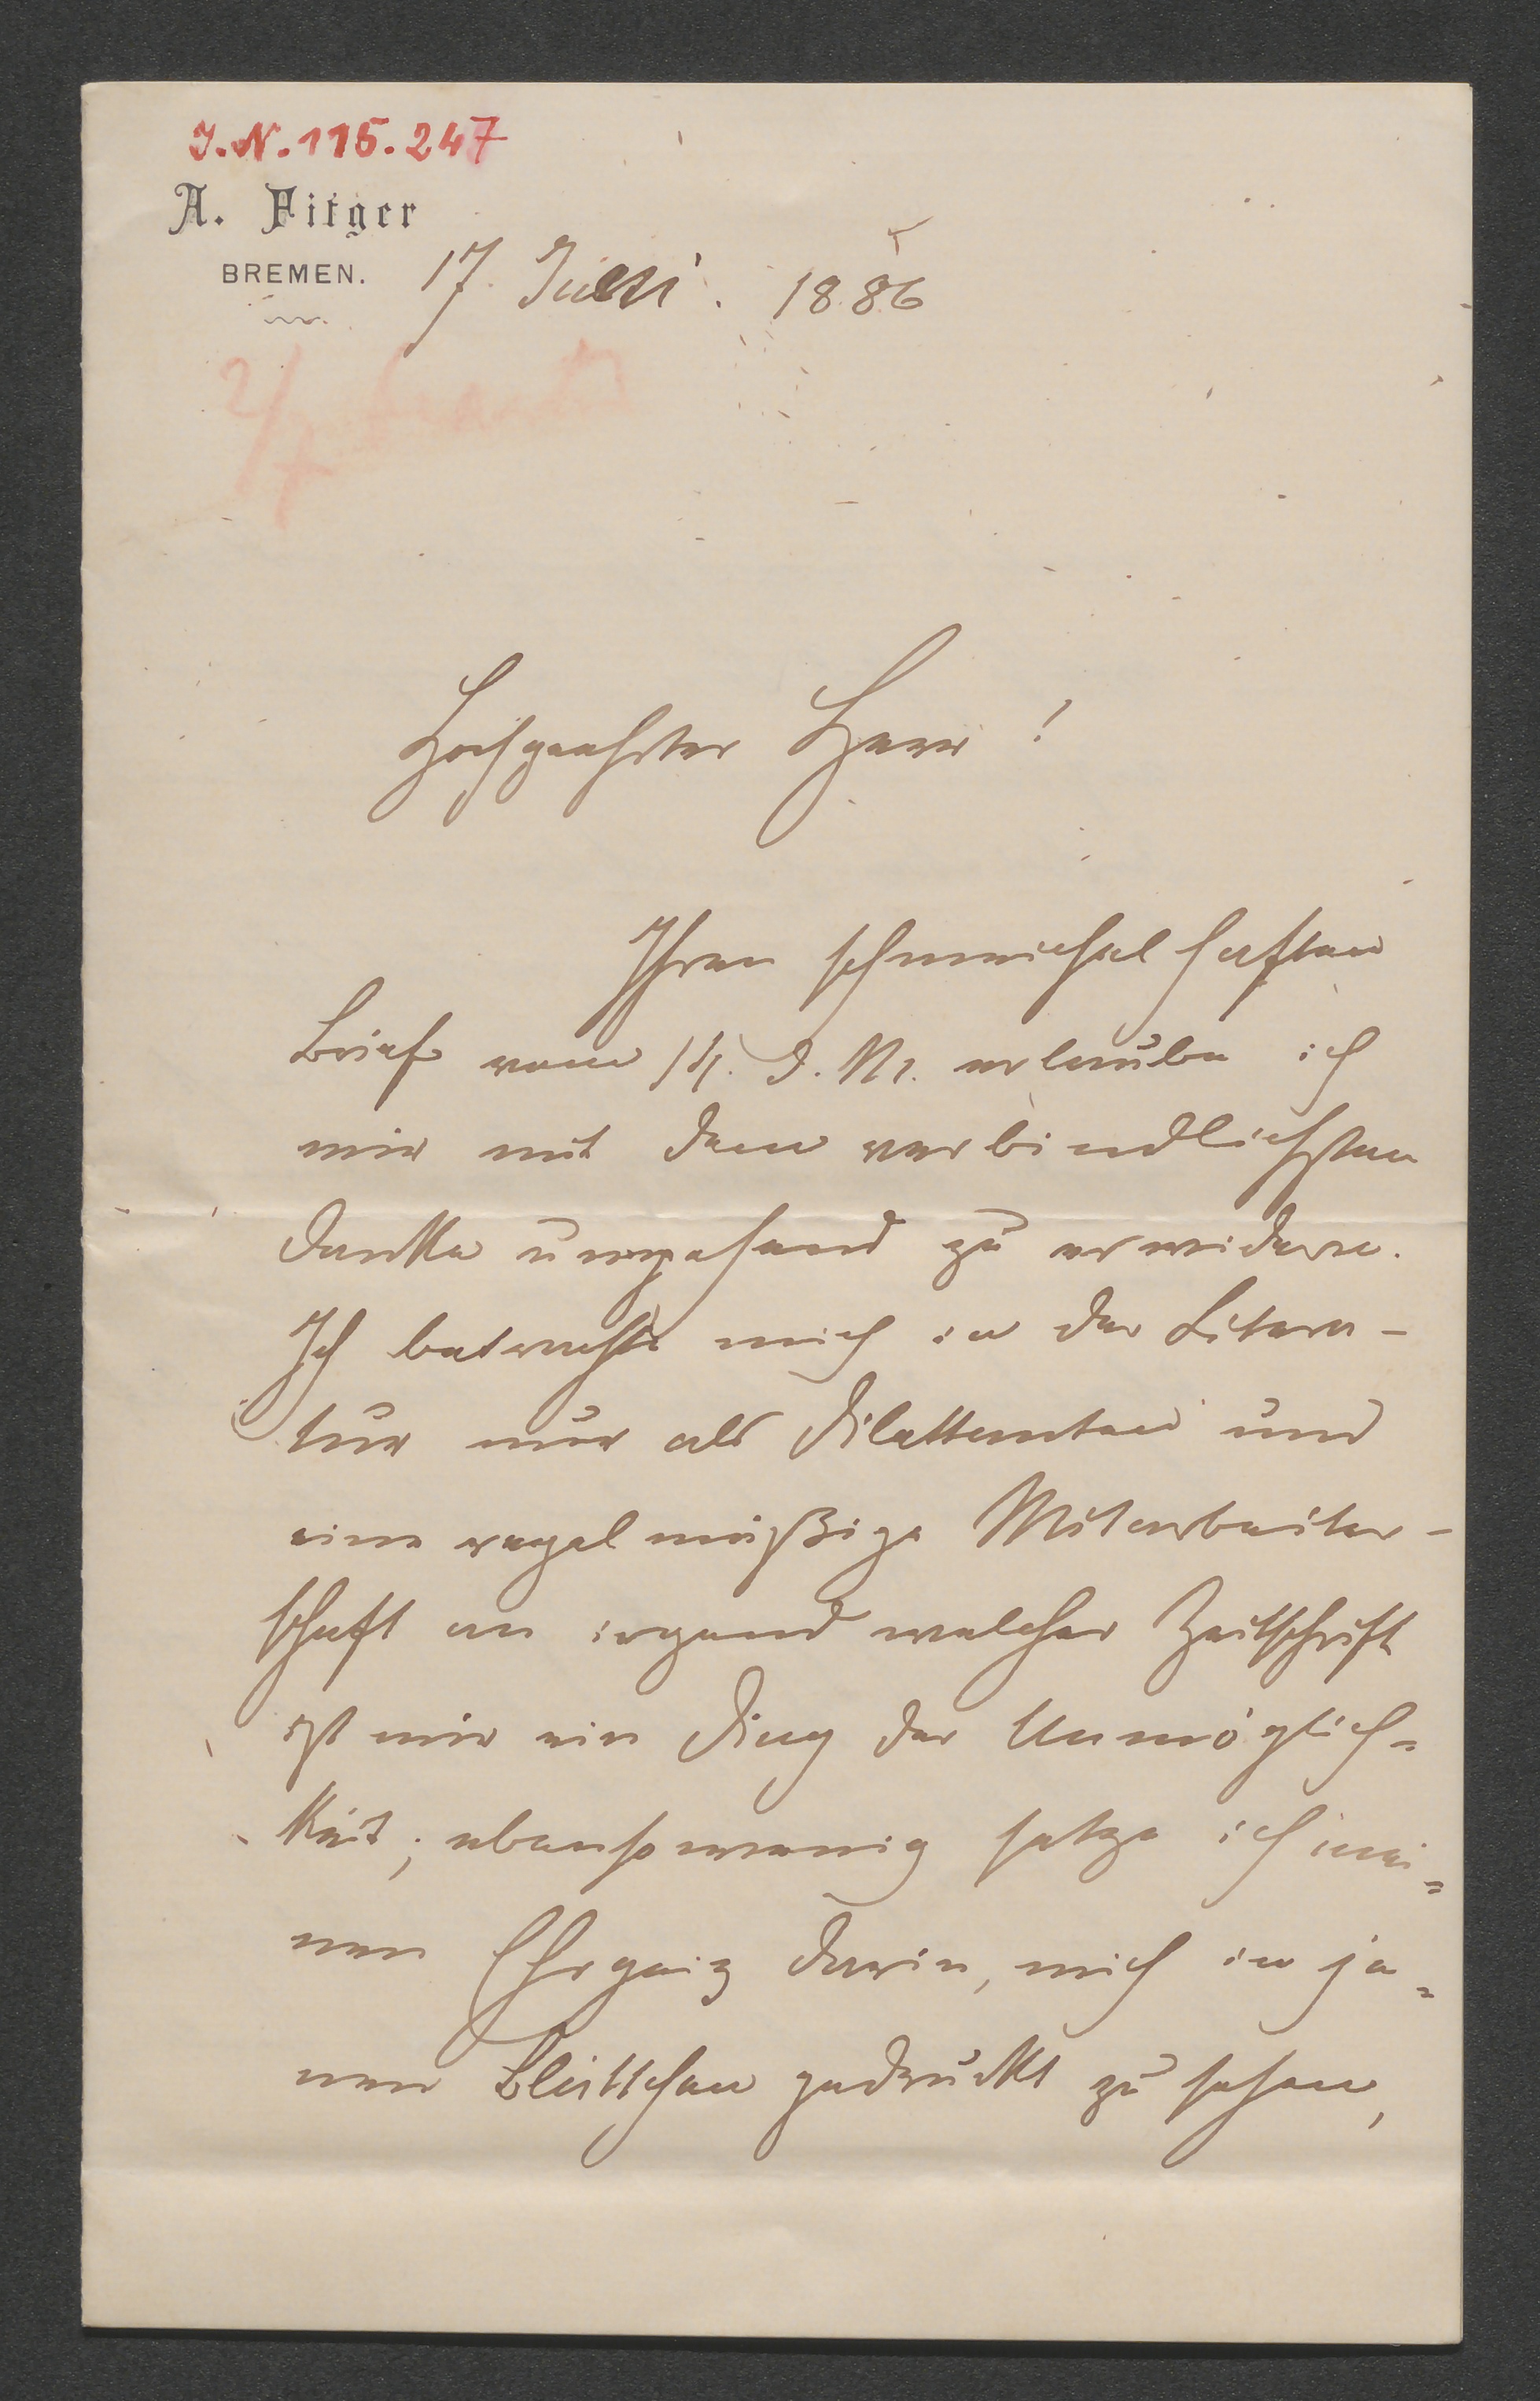 J.N.115.247
A. Fitger
BREMEN.
17. Juli. 1886
Hochgeehrter Herr!
Ihren schmeichelhaften
Brief vom 14. d. M. erlaube ich
mir mit dem verbindlichsten
Danke umgehend zu erwidern.
Ich betrachte mich in der Litera-
tur nur als Dilettanten und
eine regelmäßige Mitarbeiter-
schaft an irgend welcher Zeitschrift
ist mir ein Ding der Unmöglich-
keit; ebensowenig setze ich mei-
nen Ehrgeiz darin, mich in je-
nen Blättchen gedruckt zu sehen,